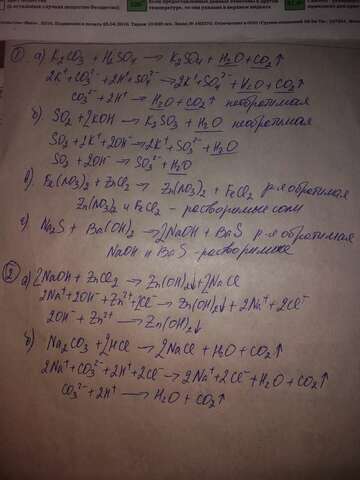 1) а) K₂CO₃ + H₂SO₄ → K₂SO₄ + H₂O + CO₂↑
2K⁺ + CO₃²⁻ + 2H⁺ + SO₄²⁻ → 2K⁺ + SO₄²⁻ + H₂O + CO₂↑
CO₃²⁻ + 2H⁺ → H₂O + CO₂↑ необратимая
б) SO₂ + 2KOH → K₂SO₃ + H₂O необратимая
SO₂ + 2K⁺ + 2OH⁻ → 2K⁺ + SO₃²⁻ + H₂O
SO₂ + 2OH⁻ → SO₃²⁻ + H₂O
в) Fe(NO₃)₂ + ZnCl₂ → Zn(NO₃)₂ + FeCl₂ р-я обратимая
Zn(NO₃)₂ и FeCl₂ - растворимые соли
г) Na₂S + Ba(OH)₂ → 2NaOH + BaS р-я обратимая
NaOH и BaS - растворимые
2) а) 2NaOH + ZnCl₂ → Zn(OH)₂↓ + 2NaCl
2Na⁺ + 2OH⁻ + Zn²⁺ + 2Cl⁻ → Zn(OH)₂↓ + 2Na⁺ + 2Cl⁻
2OH⁻ + Zn²⁺ → Zn(OH)₂↓
б) Na₂CO₃ + 2HCl → 2NaCl + H₂O + CO₂↑
2Na⁺ + CO₃²⁻ + 2H⁺ + 2Cl⁻ → 2Na⁺ + 2Cl⁻ + H₂O + CO₂↑
CO₃²⁻ + 2H⁺ → H₂O + CO₂↑